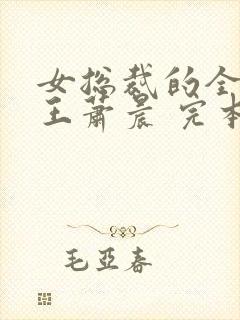 女总裁的全
王萧晨 完本
毛亚春